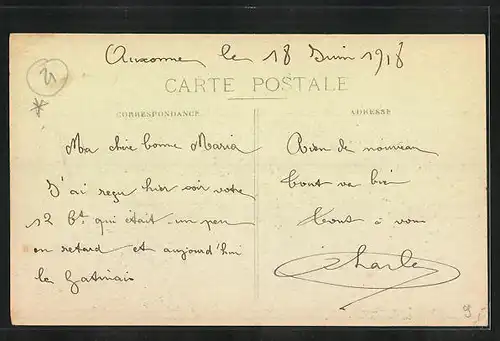 Auxonne le 18 Juin 1918
21
CARTE POSTALE
CORRESPONDANCE
ADRESSE
Ma chère bonne Maria
J'ai reçu hier soir votre
12 Ct. qui était un peu
en retard et aujourd'hui
le Gatinais
Rien de nouveau
Tout va bien
Tout à vous
Charles